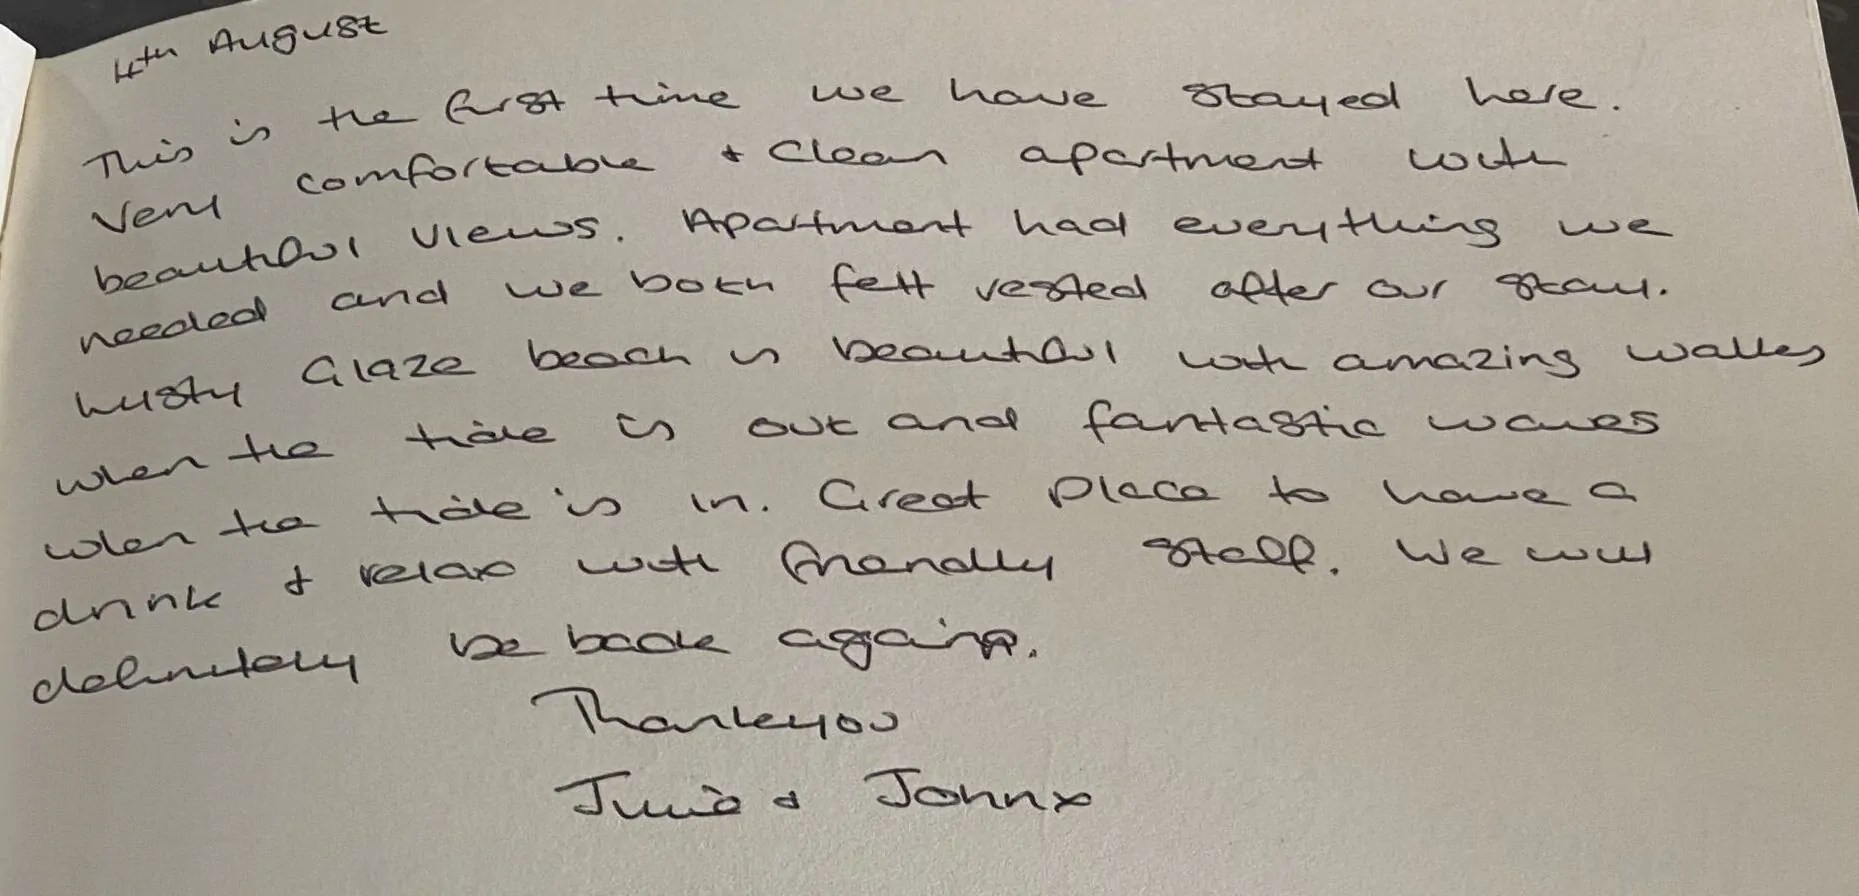 4th August
This is the first time we have stayed here.
Very comfortable + clean apartment with
beautiful views. Apartment had everything we
needed and we both felt rested after our stay.
Lusty Glaze beach is beautiful with amazing walks
when the tide is out and fantastic waves
when the tide is in. Great place to have a
drink + relax with friendly staff. We will
definitely be back again.
Thankyou
Julie + John x